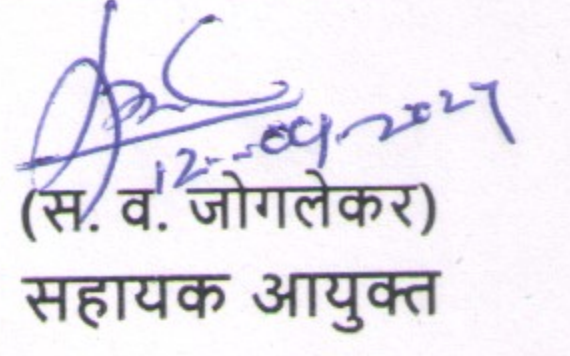 12-09-2024
(स. व. जोगलेकर)
सहायक आयुक्त